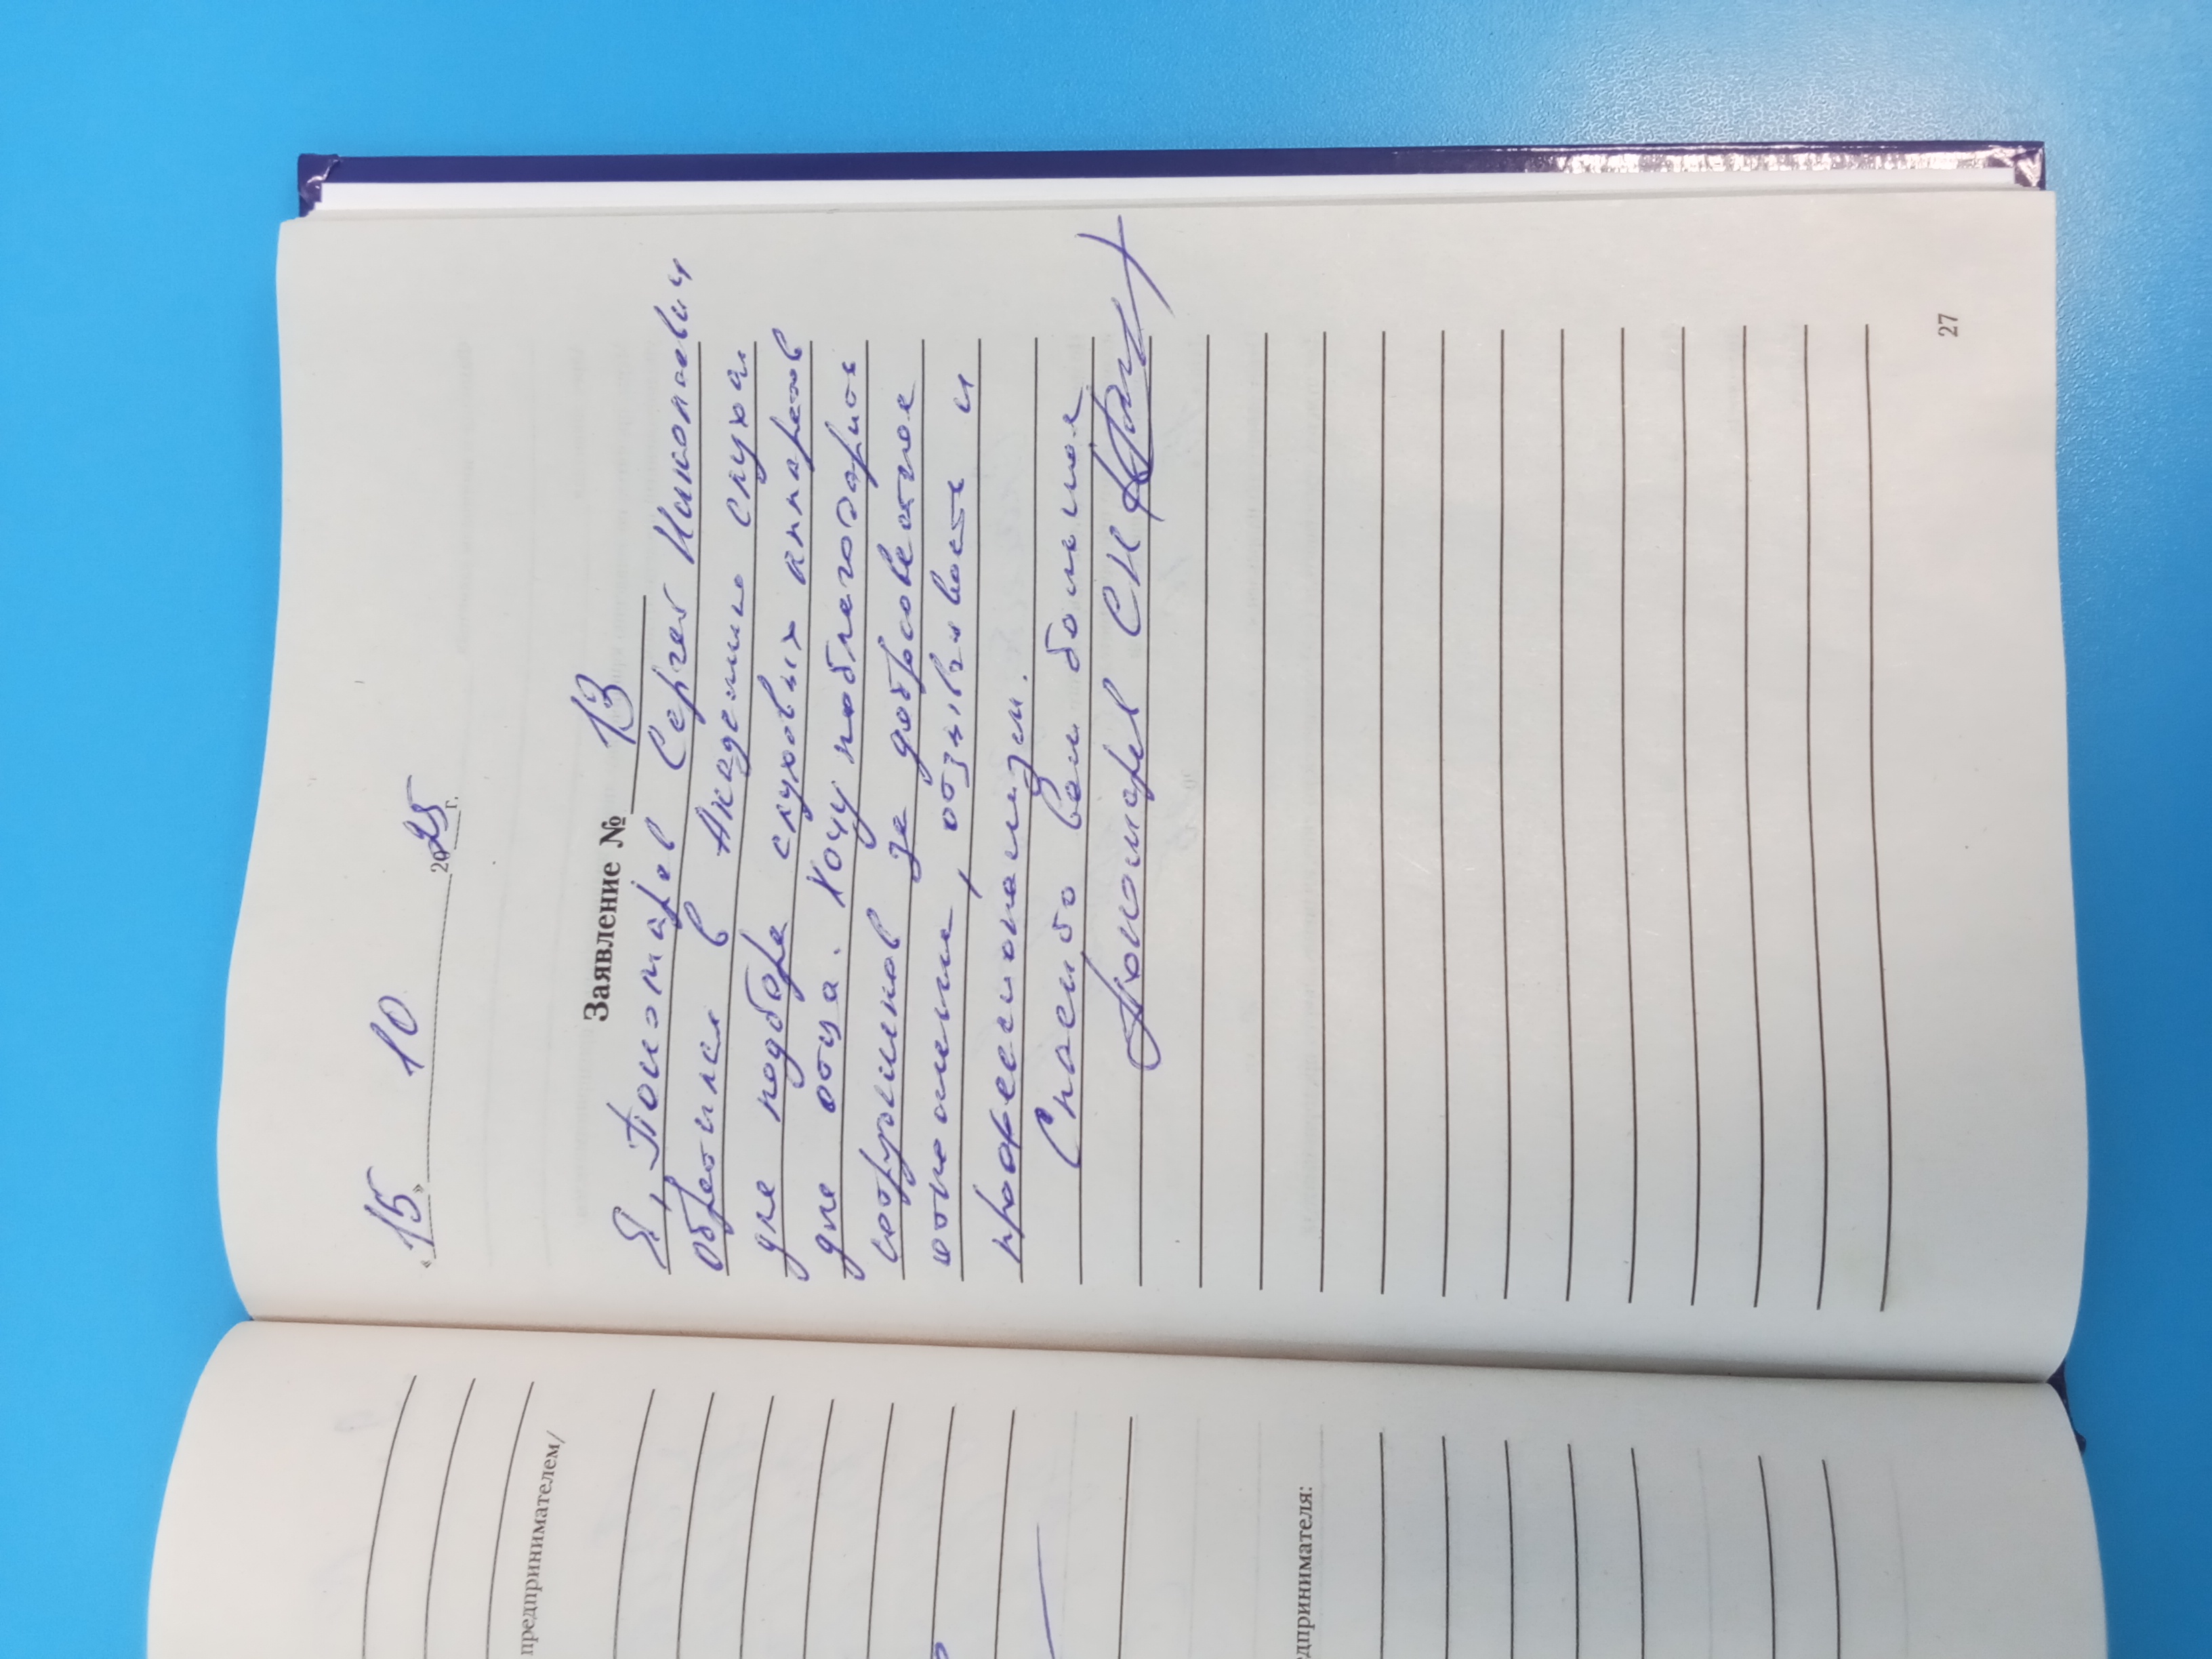 «15» 10 2025 г.
Заявление № 13
Я, Пономарев Сергей Николаевич
обратился в Академию слуха
для подбора слуховых аппаратов
для отца. Хочу поблагодарить
сотрудников за добросовестное
отношение, отзывчивость и
профессионализм.
Спасибо вам большое
Пономарев СН
27
предпринимателем/
дпринимателя: